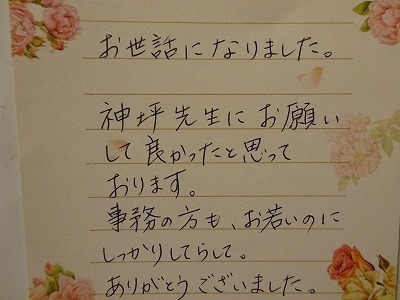 お世話になりました。
神坪先生にお願い
して良かったと思って
おります。
事務の方も、お若いのに
しっかりしてらして。
ありがとうございました。